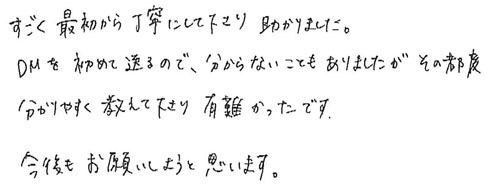 すごく最初から丁寧にして下さり助かりました。
DMを初めて送るので、分からないこともありましたがその都度
分かりやすく教えて下さり有難かったです.
今後もお願いしようと思います。